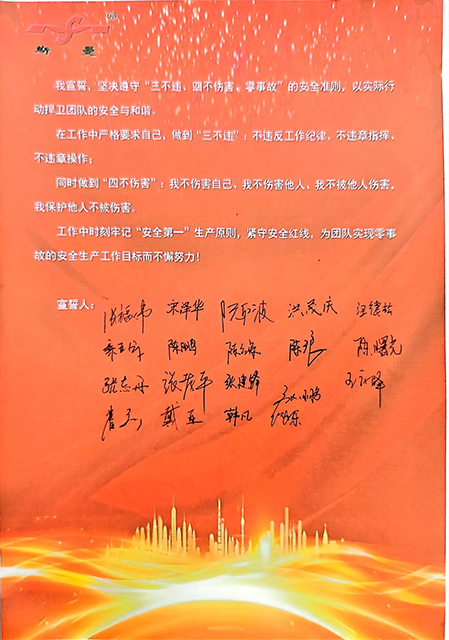 斯 曼
我宣誓，坚决遵守“三不违、四不伤害、零事故”的安全准则，以实际行
动捍卫团队的安全与和谐。
在工作中严格要求自己，做到“三不违”：不违反工作纪律、不违章指挥、
不违章操作；
同时做到“四不伤害”：我不伤害自己、我不伤害他人、我不被他人伤害，
我保护他人不被伤害。
工作中时刻牢记“安全第一”生产原则，紧守安全红线，为团队实现零事
故的安全生产工作目标而不懈努力！
宣誓人： 宋泽华 洪茂庆
陈鹏 陈曙光
张志丹 张建锋
戴亚 韩凡